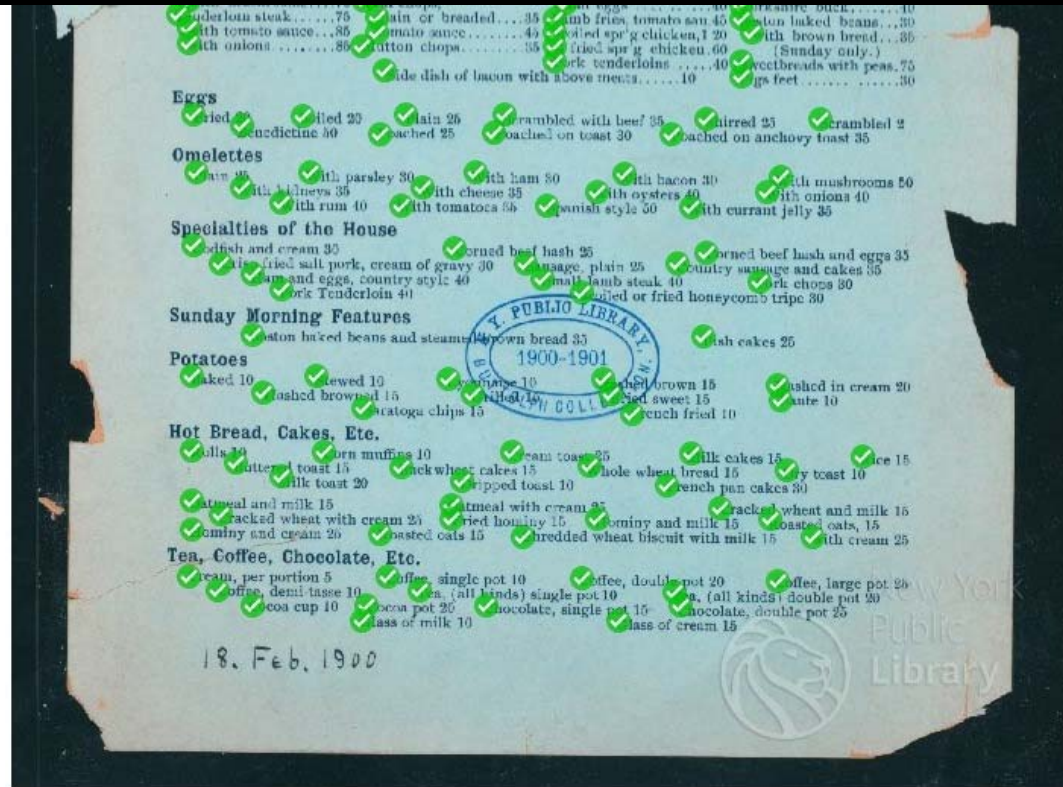 uderloin steak......75 ain or breaded....35 mb fries, tomato sau. 45 ston baked beans...30
ith tomato sauce...85 mato sauce.......45 oiled spr'g chicken, 1 20 ith brown bread...35
ith onions ..........85 utton chops.........35 fried spr'g chicken. 60 (Sunday only.)
rk tenderloins .....40 weetbreads with peas. 75
ide dish of bacon with above meats......10 gs feet ..........30
Eggs
ried iled 20 lain 25 rambled with beef 35 hirred 25 crambled 2
enedictine 50 oached 25 oached on toast 30 oached on anchovy toast 35
Omelettes
ain ith parsley 30 ith ham 30 ith bacon 30 ith mushrooms 50
ith kidneys 35 ith cheese 35 ith oysters 40 ith onions 40
ith rum 40 ith tomatoes 35 panish style 50 ith currant jelly 35
Specialties of the House
odfish and cream 35 orned beef hash 25 orned beef hash and eggs 35
fried salt pork, cream of gravy 30 ausage, plain 25 ountry sausage and cakes 35
am and eggs, country style 40 mall lamb steak 40 rk chops 30
ork Tenderloin 40 oiled or fried honeycomb tripe 30
Sunday Morning Features
oston baked beans and steamed brown bread 35 ish cakes 25
N. Y. PUBLIC LIBRARY
1900-1901
Potatoes
aked 10 tewed 10 yonnaise 10 ashed brown 15 ashed in cream 20
ashed browned 15 rilled 10 ried sweet 15 aute 10
aratoga chips 15 rench fried 10
Hot Bread, Cakes, Etc.
olls 10 orn muffins 10 ream toast 25 ilk cakes 15 ice 15
uttered toast 15 uckwheat cakes 15 hole wheat bread 15 ry toast 10
ilk toast 20 ripped toast 10 rench pan cakes 30
atmeal and milk 15 atmeal with cream 25 racked wheat and milk 15
racked wheat with cream 25 ried hominy 15 ominy and milk 15 oasted oats, 15
ominy and cream 25 oasted oats 15 hredded wheat biscuit with milk 15 ith cream 25
Tea, Coffee, Chocolate, Etc.
ream, per portion 5 offee, single pot 10 offee, double pot 20 offee, large pot 25
offee, demi-tasse 10 ea, (all kinds) single pot 10 a, (all kinds) double pot 20
ocoa cup 10 ocoa pot 25 hocolate, single pot 15 hocolate, double pot 25
lass of milk 10 lass of cream 15
18. Feb. 1900
New York
Public
Library